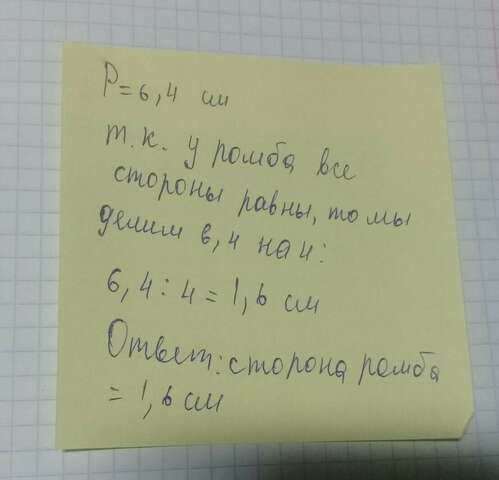 P=6,4 см
т.к. у ромба все
стороны равны, то мы
делим 6,4 на 4:
6,4:4=1,6 см
Ответ: сторона ромба
=1,6 см